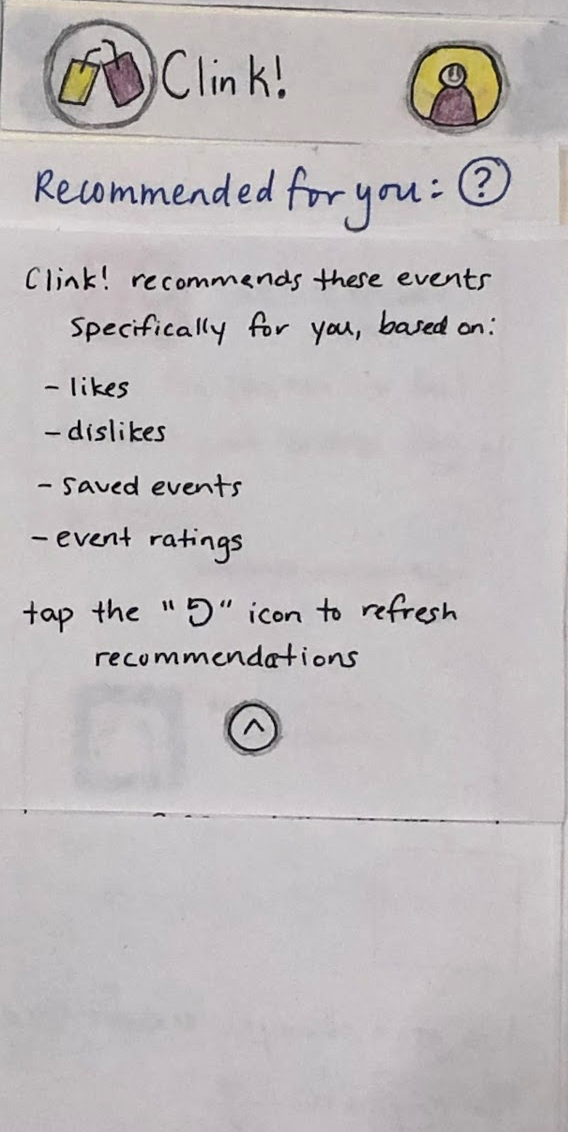 Clink!
Recommended for you: ?
Clink! recommends these events
specifically for you, based on:
- likes
- dislikes
- saved events
- event ratings
tap the "↻" icon to refresh
recommendations